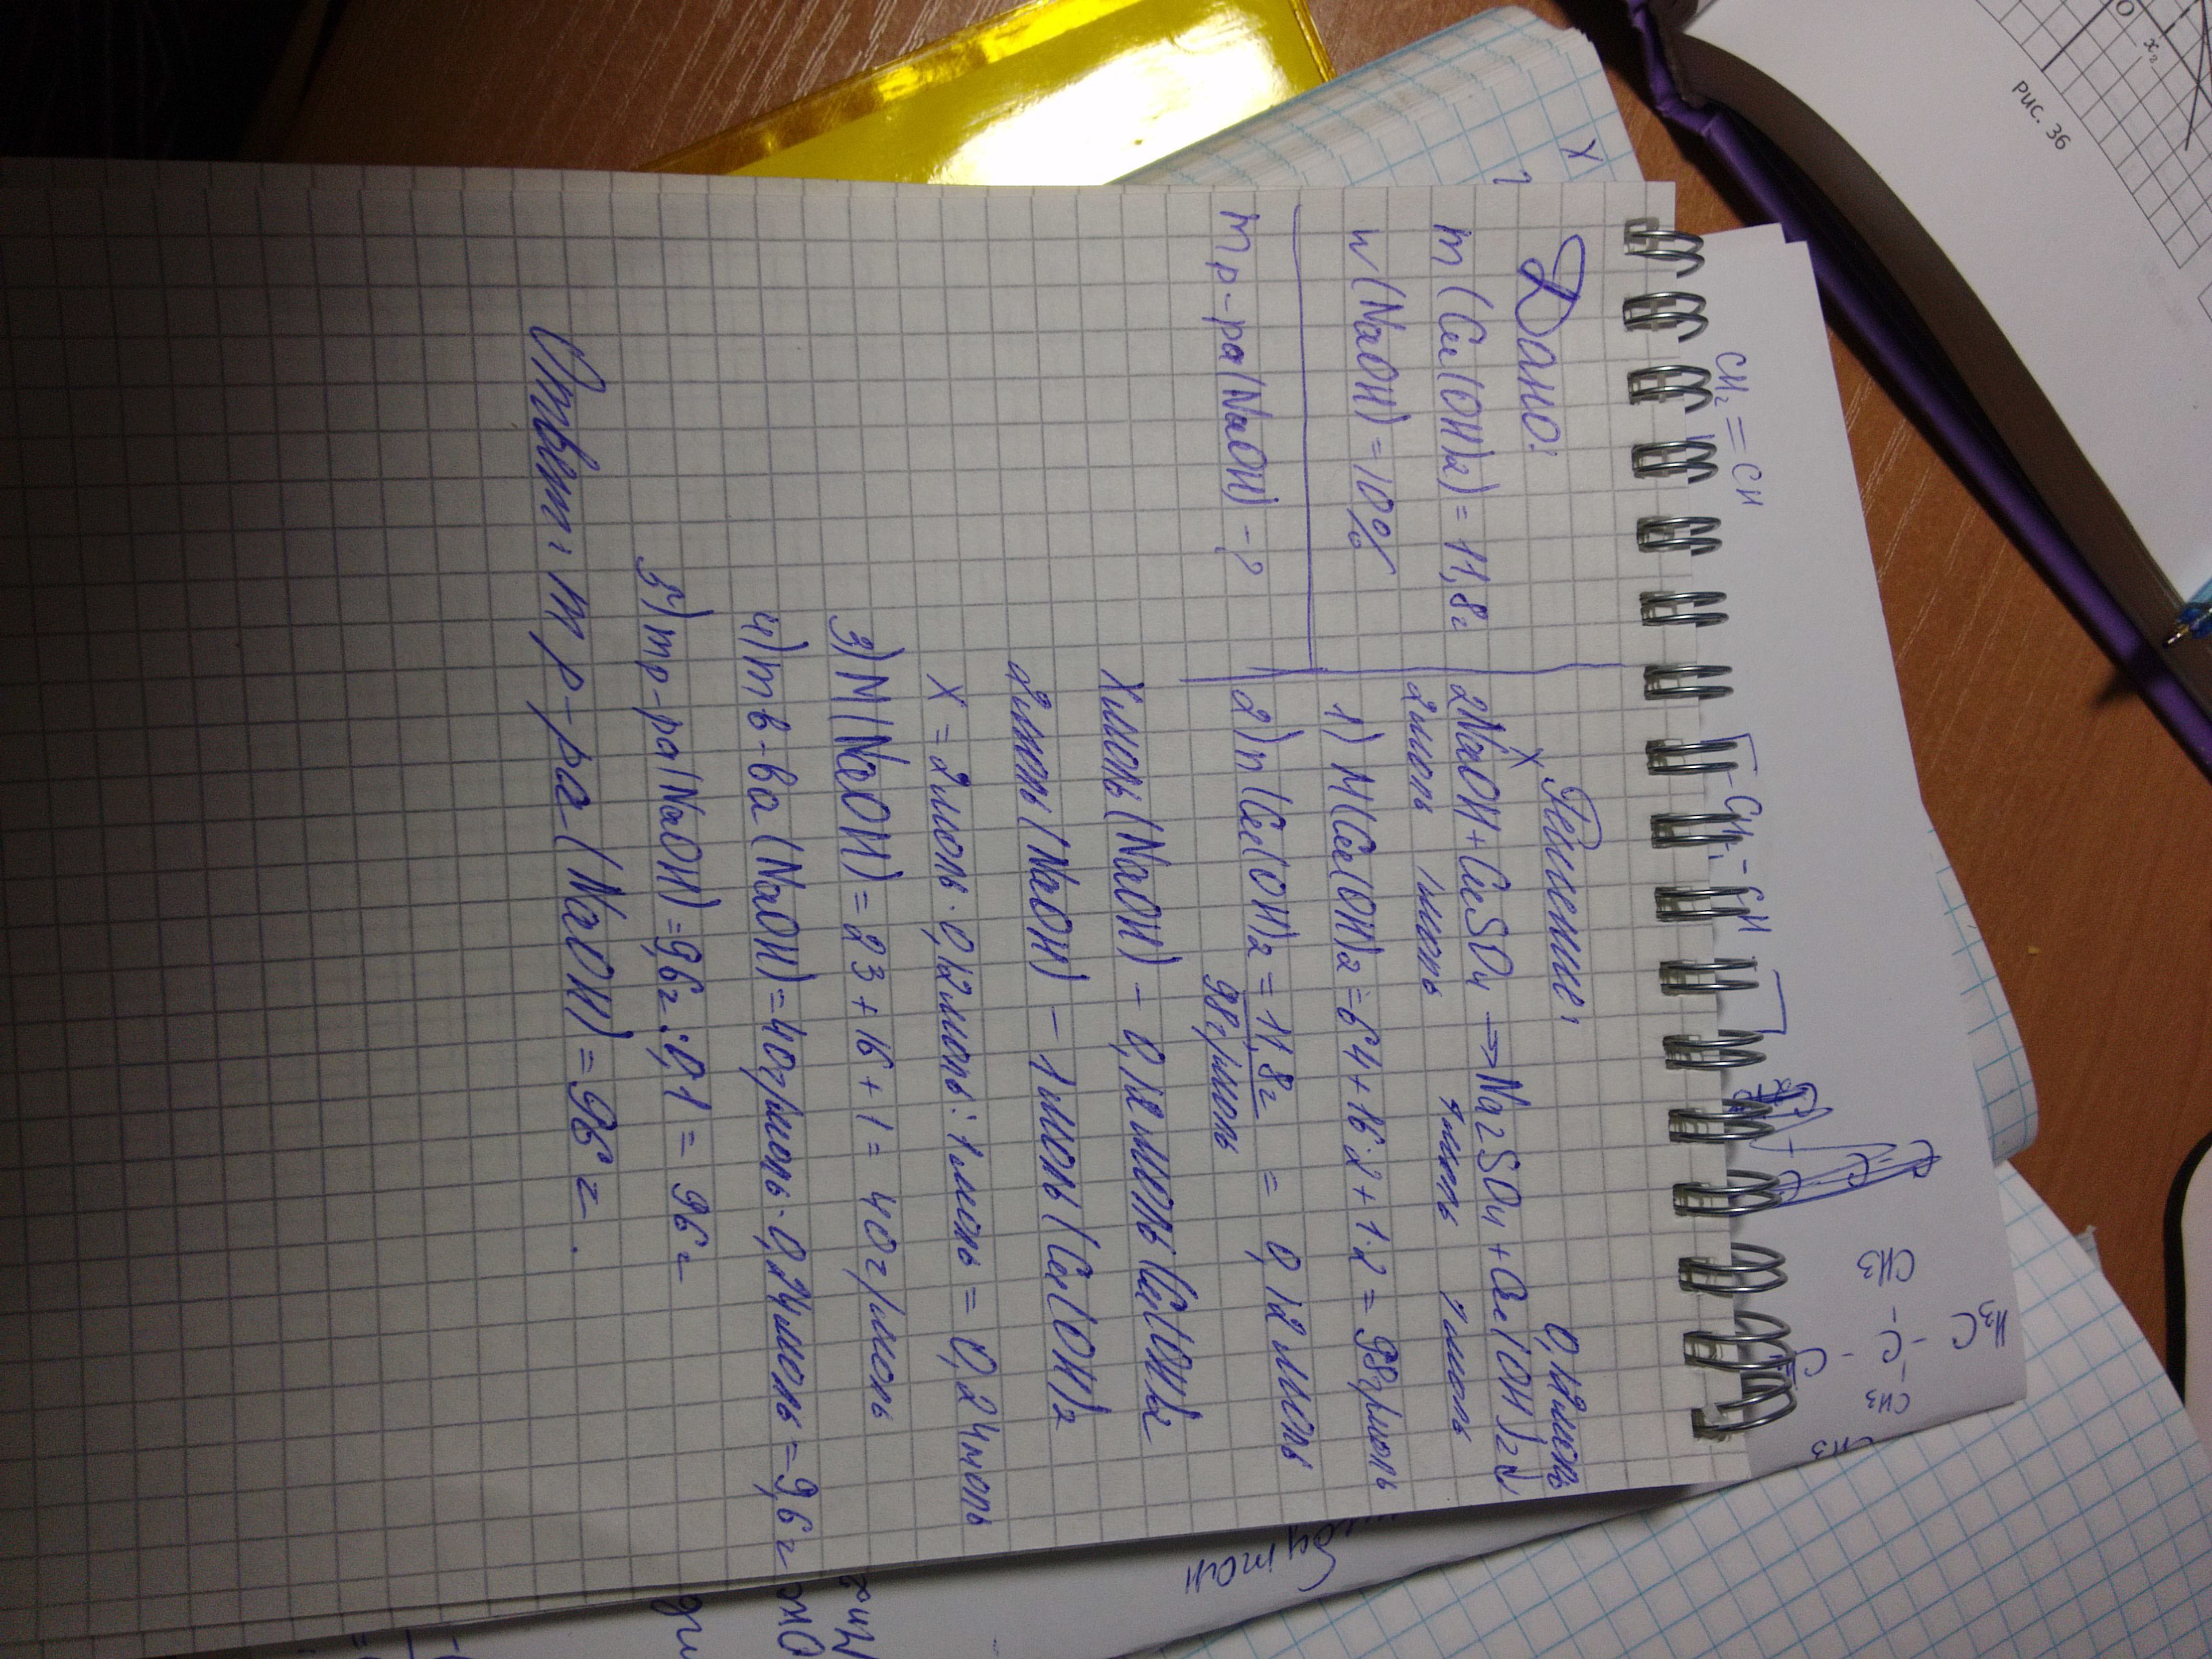 Дано:
m (Cu(OH)2) = 11,8г
w (NaOH) = 10%
m р-ра(NaOH) - ?
Решение:
X
0,12моль
2NaOH + CuSO4 → Na2SO4 + Cu(OH)2↓
2моль 1моль 1моль 1моль
1) M(Cu(OH)2 = 64 + 16·2 + 1·2 = 98г/моль
2) n (Cu(OH)2 = 11,8г = 0,12моль
98г/моль
Xмоль(NaOH) - 0,12моль(Cu(OH)2
2моль(NaOH) - 1моль(Cu(OH)2
X = 2моль · 0,12моль : 1моль = 0,24моль
3) M(NaOH) = 23 + 16 + 1 = 40г/моль
4) m в-ва (NaOH) = 40г/моль · 0,24моль = 9,6г
5) m р-ра(NaOH) = 9,6г : 0,1 = 96г
Ответ: m р-ра (NaOH) = 96г.
CH2 = CH
-CH2-CH
CH3
H3C - C - C
CH3
CH3
Рис. 36
O
x2